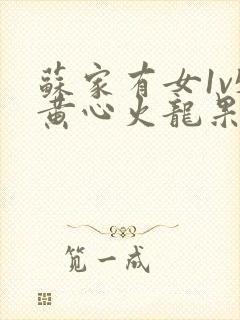 蘇家有女1v1
黃心火龍果
笕一成